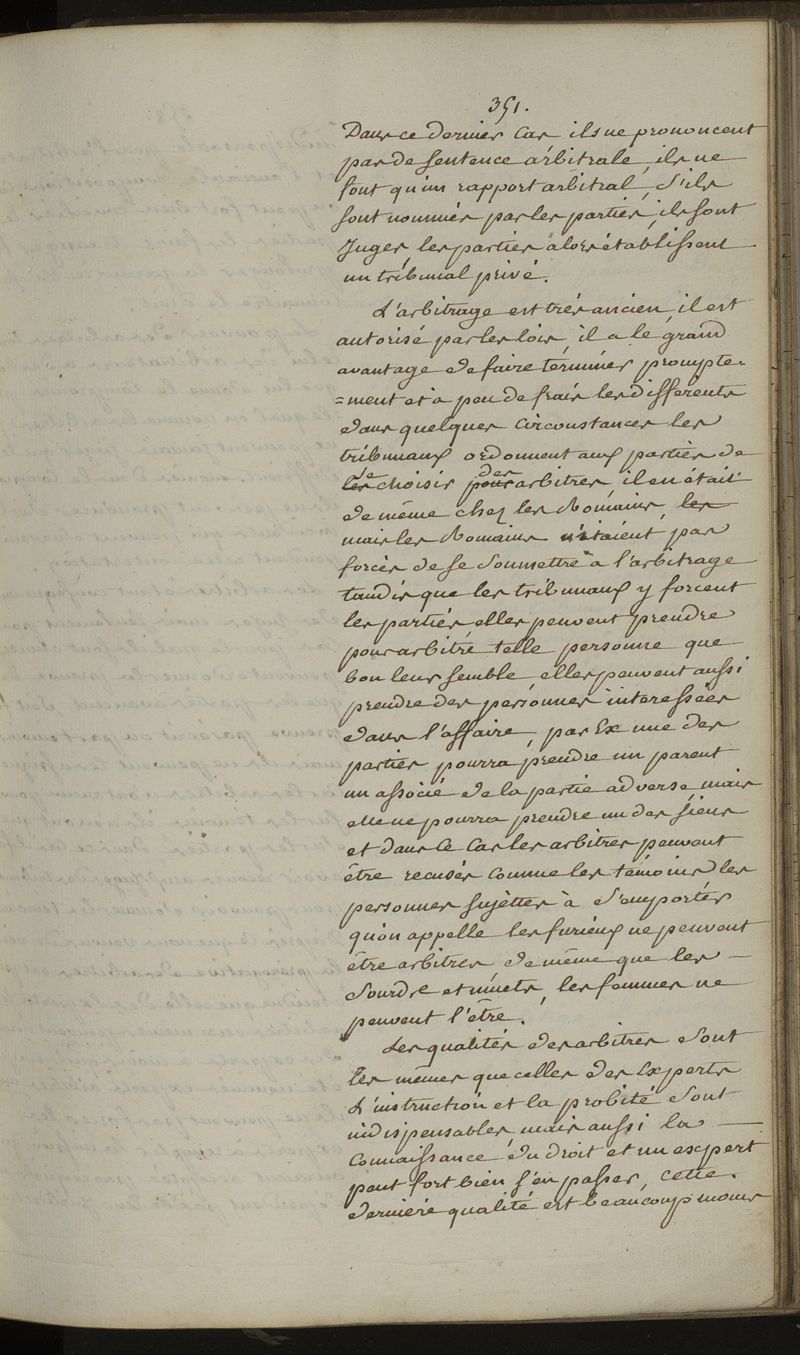 351.
Dans ce dernier cas ils ne prononcent
pas de sentence arbitrale, ils ne
font qu'un rapport arbitral, s'ils
sont nommés par les parties, ils sont
Juges, les parties alors établissent
un tribunal privé.
L'arbitrage est trés ancien, il est
autorisé par les lois, il a le grand
avantage de faire términer prompte=
=ment et à peu de frais les différents
dans quelques circonstances les
tribunaux ordonnent aux parties de
se choisir des arbitres, il en était
de même chez les Romains, les
mais les Romains n'étaient pas
forcés de se soumettre à l'arbitrage
tandis que les tribunaux y forcent
les parties elles peuvent prendre
pour arbitre telle personne que
bon leur semble elles peuvent aussi
prendre des personnes interessées
dans l'affaire, par Ex une des
parties pourra prendre un parent
un associé de la partie adverse mais
elle ne pourra prendre un des siens
et dans ce cas les arbitres peuvent
être recusés comme les témoins les
personnes sujettes à s'emporter
qu'on appelle les furieux ne peuvent
être arbitres de même que les —
sourds et muets, les femmes ne
peuvent l'être.
Les qualités des arbitres sont
les mêmes que celles des Experts
L'instruction et la probité sont
indispensables, mais aussi la —
connaissance du droit et un expert
peut fort bien s'en passer, cette
derniére qualité est beaucoup moins